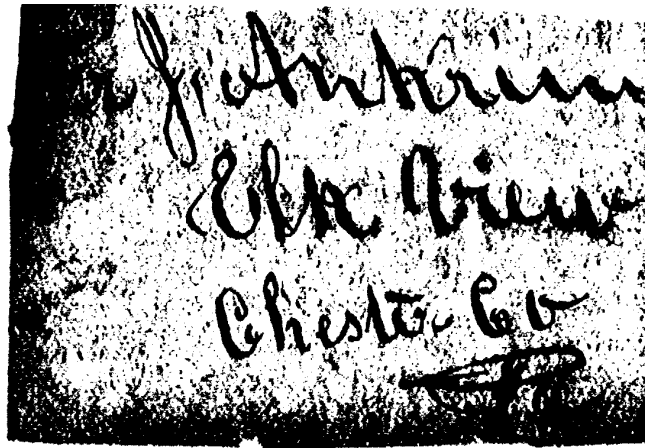 J. Ankrum
Elk View
Chester Co